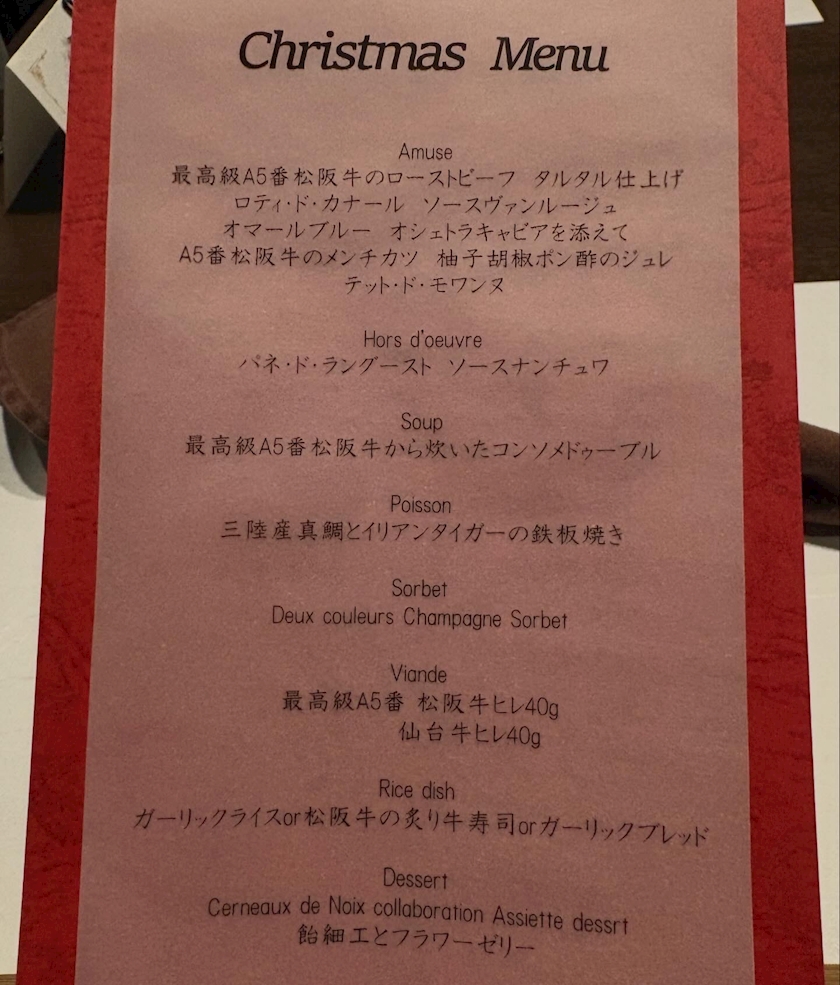 Christmas Menu
Amuse
最高級A5番松阪牛のローストビーフ タルタル仕上げ
ロティ・ド・カナール ソースヴァンルージュ
オマールブルー オシェトラキャビアを添えて
A5番松阪牛のメンチカツ 柚子胡椒ポン酢のジュレ
テット・ド・モワンヌ
Hors d'oeuvre
パネ・ド・ラングースト ソースナンチュワ
Soup
最高級A5番松阪牛から炊いたコンソメドゥーブル
Poisson
三陸産真鯛とイリアンタイガーの鉄板焼き
Sorbet
Deux couleurs Champagne Sorbet
Viande
最高級A5番 松阪牛ヒレ40g
仙台牛ヒレ40g
Rice dish
ガーリックライスor松阪牛の炙り牛寿司orガーリックブレッド
Dessert
Cerneaux de Noix collaboration Assiette dessrt
飴細工とフラワーゼリー